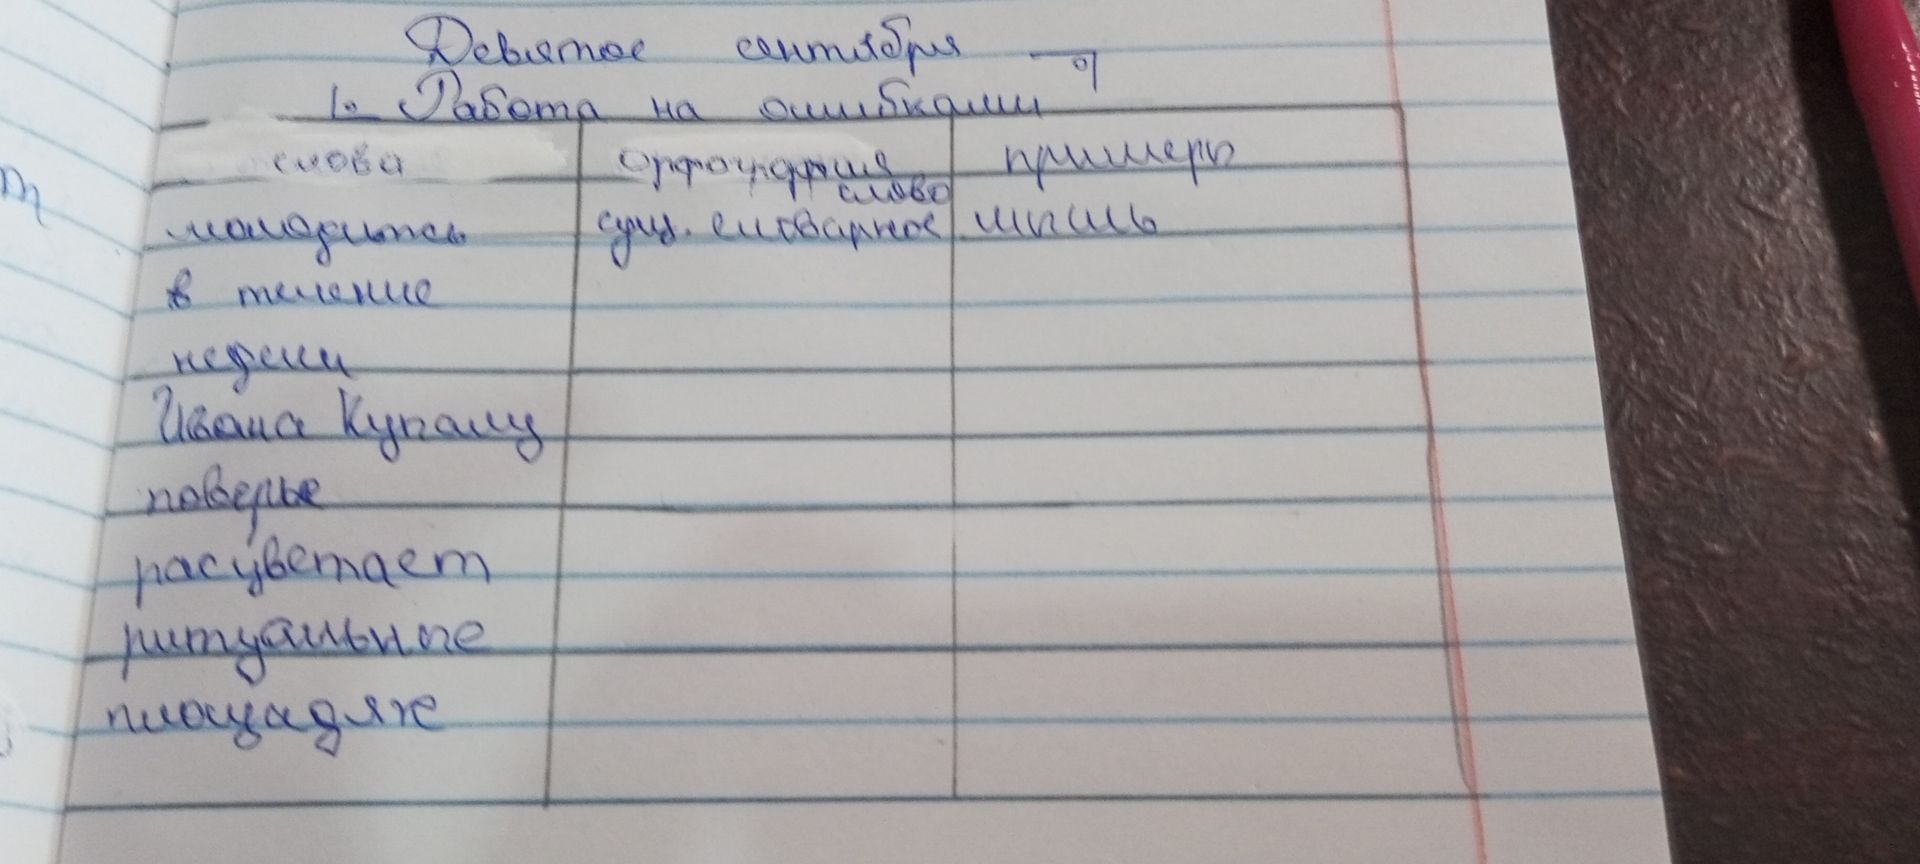 Девятое сентября
1. Работа на ошибками
слова орфография примеры
слово
сущ. словарное
в течение
недели
Ивана Купалу
поверье
расцветает
ритуальное
площадяхе